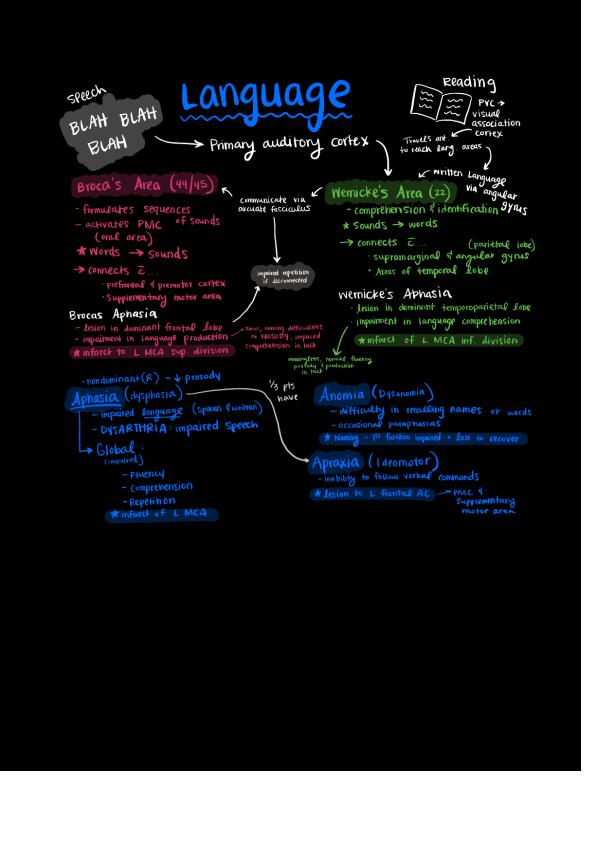 Language
speech
BLAH BLAH
BLAH
Reading
PVC →
visual
association
cortex
Travels
to reach lang. areas
written language
via angular
gyrus
Primary auditory cortex
Broca's Area (44/45)
- formulates sequences
of sounds
- activates PMC
(oral area)
★ Words → sounds
→ connects c̄...
· prefrontal & premotor cortex
· Supplementary motor area
communicate via
arcuate fasciculus
impaired repetition
if disconnected
Wernicke's Area (22)
- comprehension & identification
★ Sounds → words
→ connects c̄... (parietal lobe)
· supramarginal & angular gyrus
· Areas of temporal lobe
Brocas Aphasia
- lesion in dominant frontal lobe
- impairment in language production
★ infarct to L MCA sup. division
slow, naming difficulties,
no PROSODY, impaired
comprehension in tact
Wernicke's Aphasia
· lesion in dominant temporoparietal lobe
· impairment in language comprehension
★ infarct of L MCA inf. division
meaningless, normal fluency
prosody & production
in tact
- nondominant (R) = ↓ prosody
Aphasia (dysphasia)
- impaired language (spoken & written)
- DYSARTHRIA: impaired speech
→ Global :
(impaired)
- Fluency
- Comprehension
- Repetition
★ infarct of L MCA
1/3 pts
have
Anomia (Dysanomia)
- difficulty in recalling names or words
- occasional paraphasias
★ Naming = 1st function impaired + last to recover
Apraxia (Ideomotor)
- inability to follow verbal commands
★ lesion to L frontal AC → PMC &
supplementary
motor area